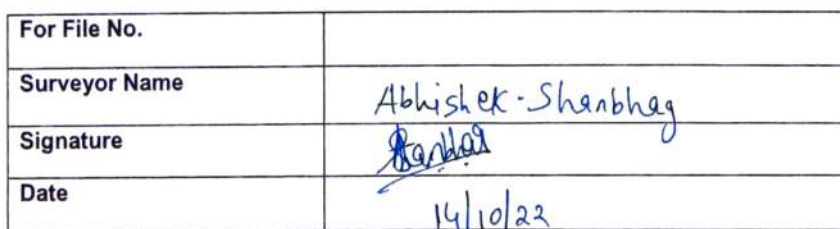 For File No.
Surveyor Name Abhishek. Shanbhag
Signature
Date 14/10/22